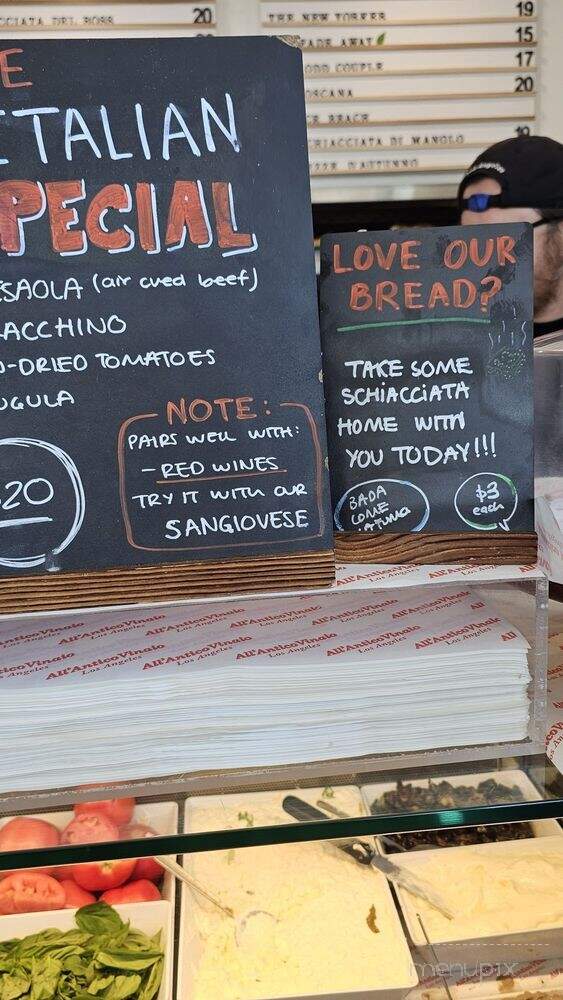 20
THE NEW YORKER 19
15
ODD COUPLE 17
TOSCANA 20
BEACH
SCHIACCIATA DI MANOLO 19
D'AUTUNNO
E
ITALIAN
SPECIAL
ESAOLA (air cured beef)
RACCHINO
N-DRIED TOMATOES
UGULA
$20
NOTE:
PAIRS WELL WITH:
- RED WINES
TRY IT WITH OUR
SANGIOVESE
LOVE OUR
BREAD?
TAKE SOME
SCHIACCIATA
HOME WITH
YOU TODAY!!!
BADA
COME
$3
each
All'Antico Vinaio
Los Angeles
menupix